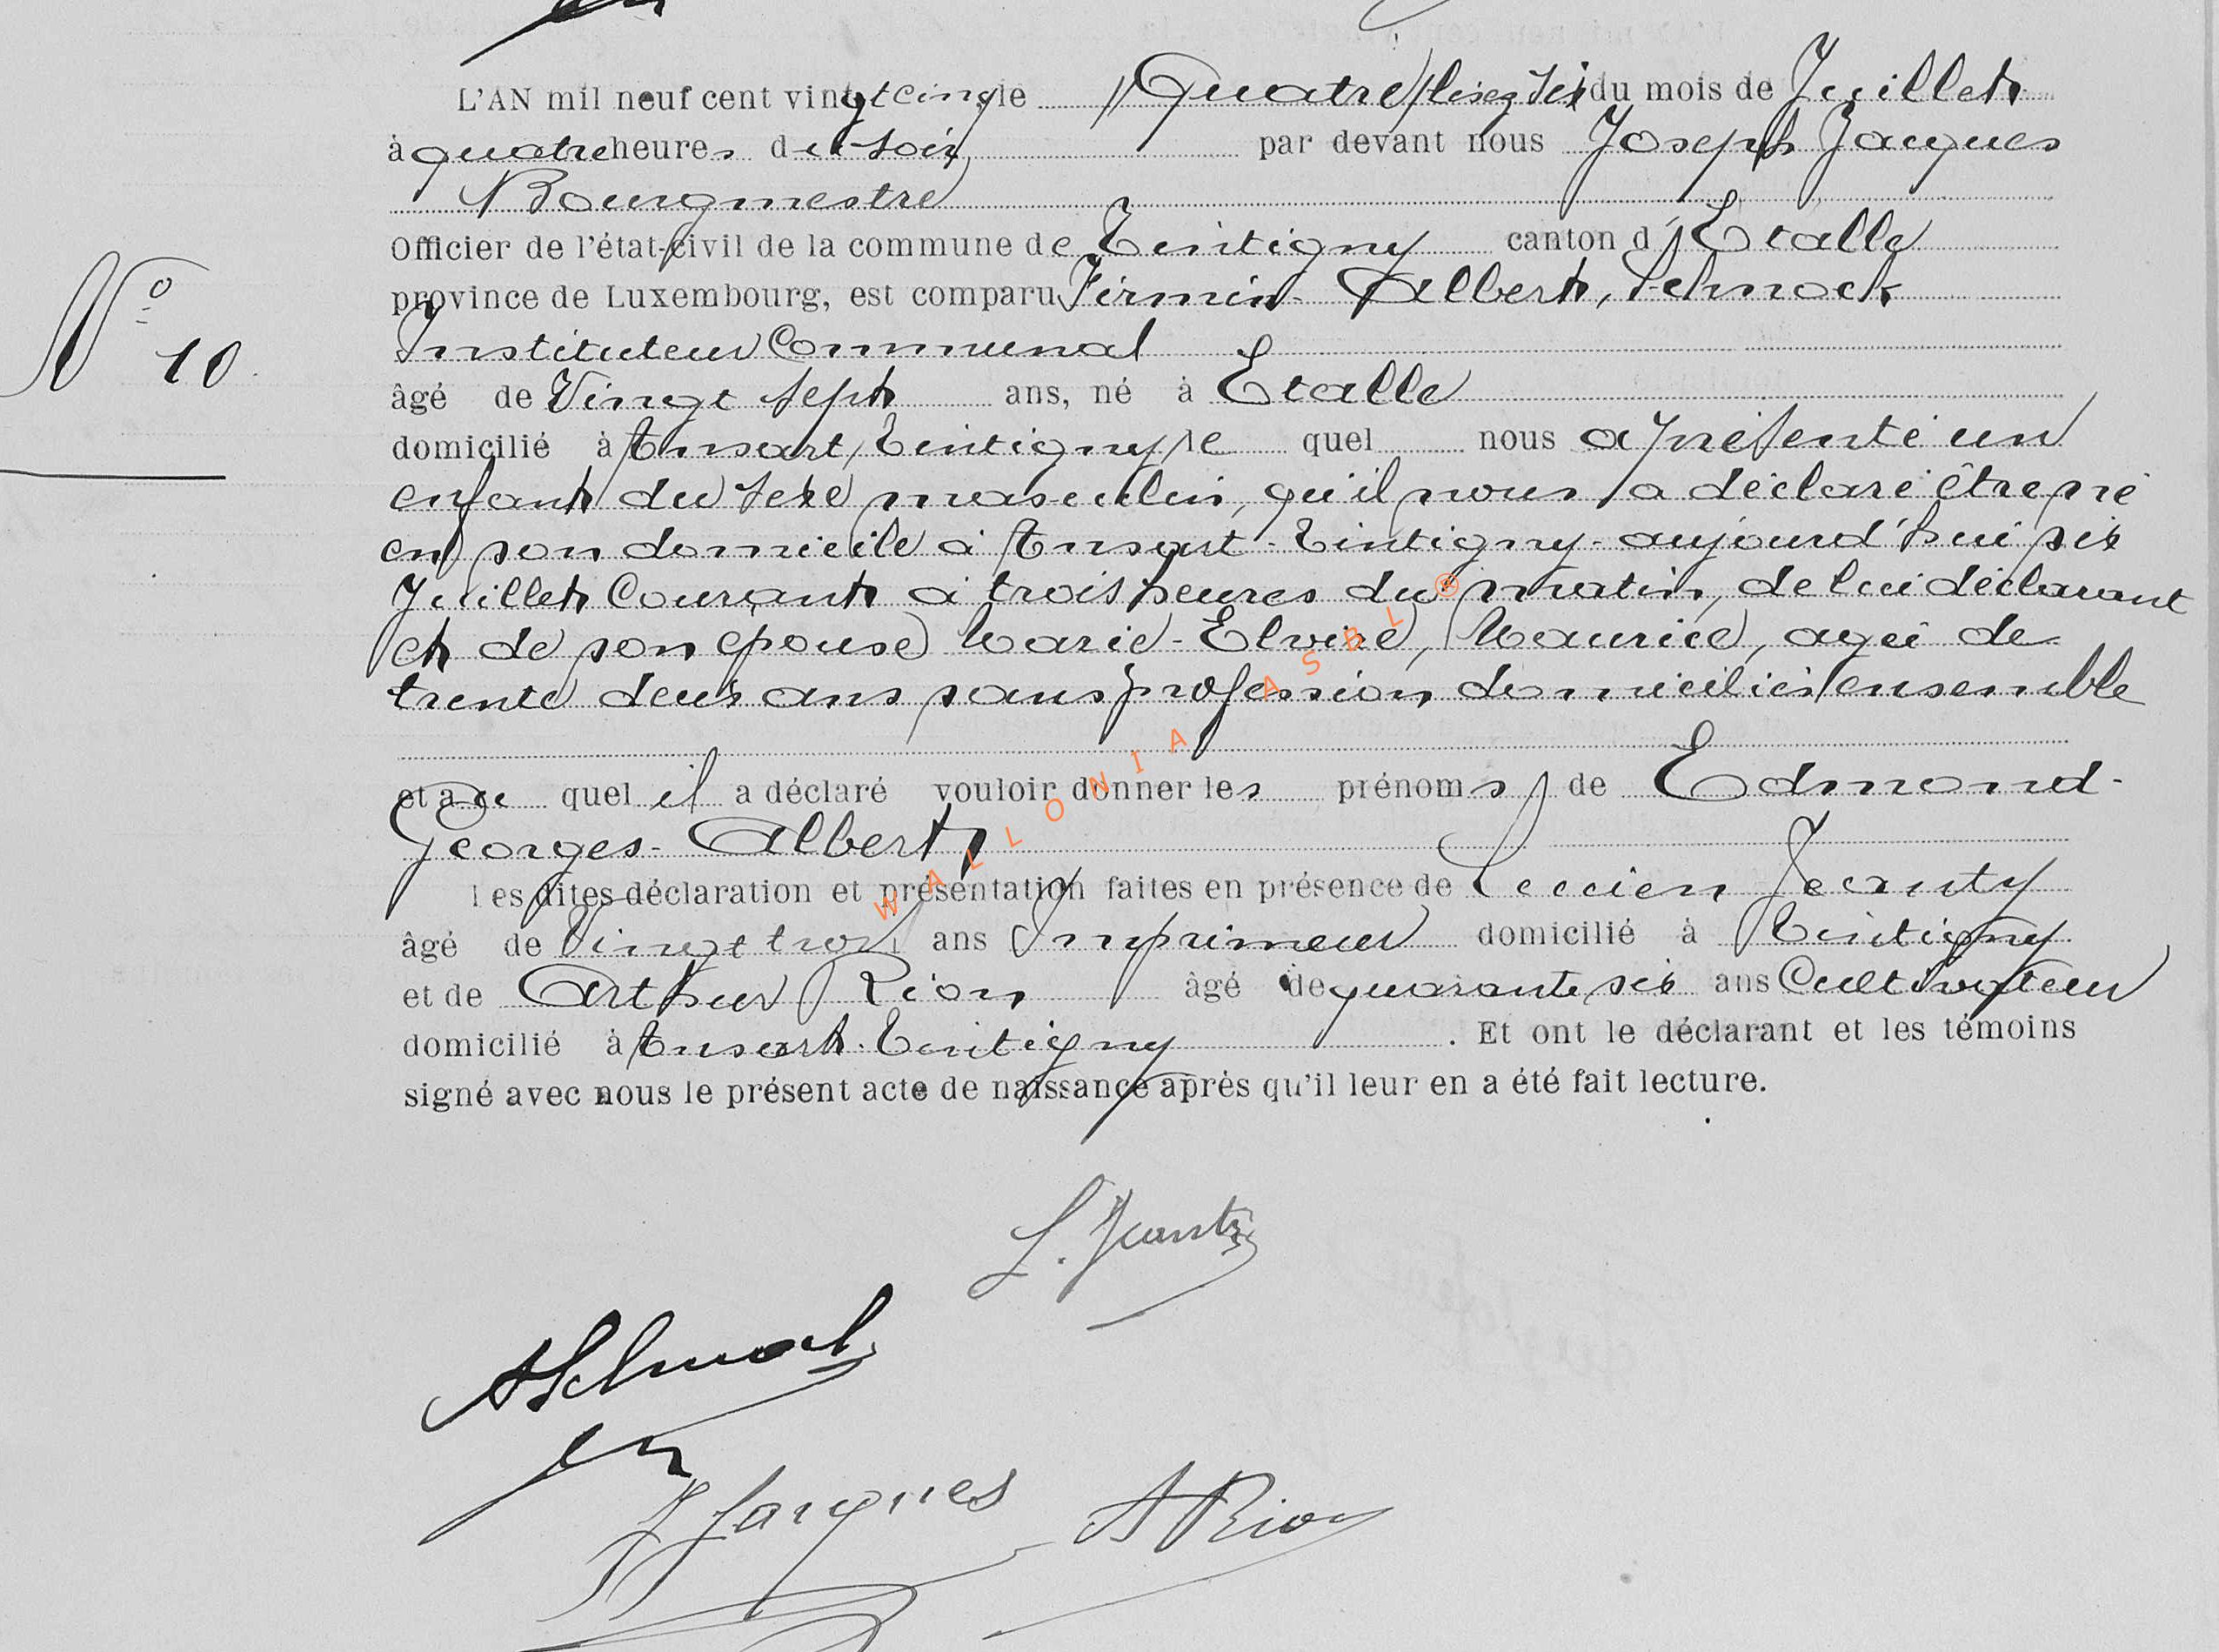 L'AN mil neuf cent vingt cinq le Quatre / lisez six du mois de Juillet
à quatre heures du soir par devant nous Joseph Jacques
Bourgmestre
Officier de l'état-civil de la commune de Tintigny canton d'Etalle
province de Luxembourg, est comparu Firmin Albert, Schnock
N° 10
Instituteur Communal
âgé de Vingt sept ans, né à Etalle
domicilié à Ansart, Tintigny le quel nous a présenté un
enfant du sexe masculin, qu'il nous a déclaré être né
en son domicile à Ansart-Tintigny-aujourd'hui six
Juillet Courant à trois heures du matin, de lui déclarant
et de son épouse Marie-Elvire, Maurice, agée de
trente deux ans sans profession domiciliés ensemble
et au quel il a déclaré vouloir donner les prénoms de Edmond-
Georges-Albert
Les dites déclaration et présentation faites en présence de Lucien Jeanty
âgé de Vingt trois ans Imprimeur domicilié à Tintigny
et de Arthur Rion âgé de quarante six ans Cultivateur
domicilié à Ansart-Tintigny. Et ont le déclarant et les témoins
signé avec nous le présent acte de naissance après qu'il leur en a été fait lecture.
L. Jeanty
J Jacques
A Rion
WALLONIA ASBL ®